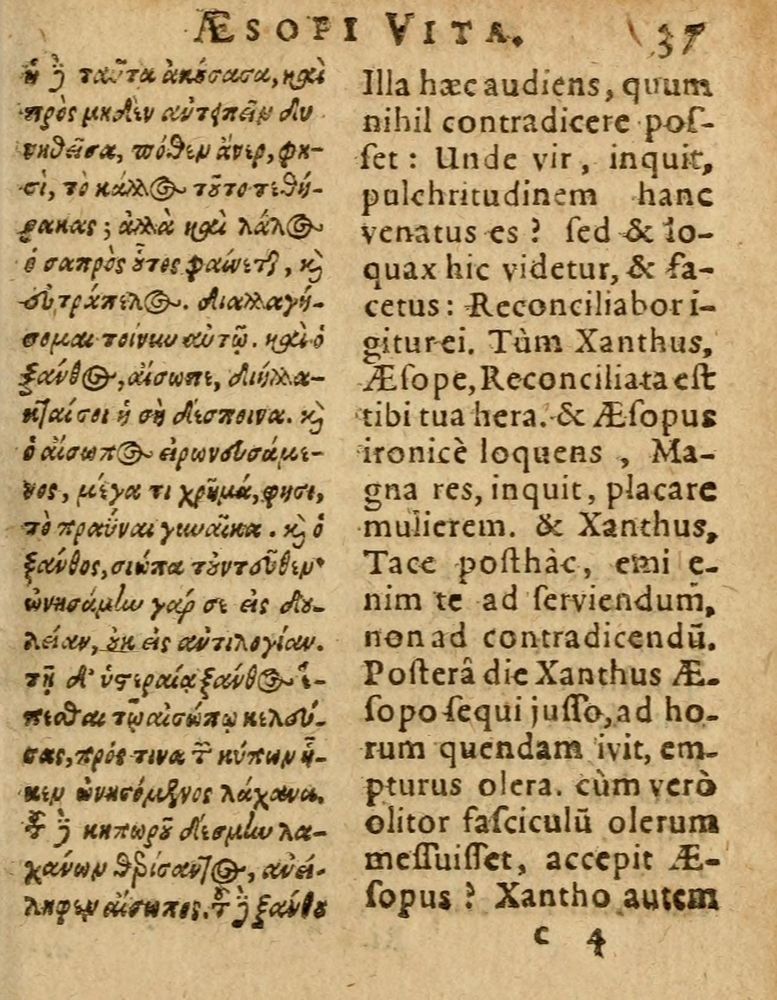 ÆSOPI VITA. 37
ἡ δὲ ταῦτα ἀκούσασα, καὶ
πρὸς μηδὲν αὐτειπεῖν δυ
νηθεῖσα, πόθεν ἄνερ, φη-
σὶ, τὸ κάλλος τοῦτο τεθή-
ρακας; ἀλλὰ καὶ λάλος
ὁ σαπρὸς οὗτος φαίνεται, καὶ
εὐτράπελος. διαλλαγή-
σομαι τοίνυν αὐτῷ. καὶ ὁ
ξάνθος, αἴσωπε, διήλλα-
κταί σοι ἡ σὴ δέσποινα. καὶ
ὁ αἴσωπος εἰρωνευσάμε-
νος, μέγα τι χρῆμά, φησι,
τὸ πραῦναι γυναῖκα. καὶ ὁ
ξάνθος, σιώπα τοὐντεῦθεν·
ὠνησάμην γάρ σε εἰς δου-
λείαν, οὐκ εἰς αὐτιλογίαν.
τῇ δ' ὑστεραίᾳ ξάνθος ἕ-
πεσθαι τῷ αἰσώπῳ κελεύ-
σας, πρός τινα τῶν κήπων ἧ-
κεν ὠνησόμενος λάχανα.
τοῦ δὲ κηπωροῦ δέσμην λα-
χάνων θερίσαντος, ἀνεί-
ληφεν αἴσωπος. τοῦ δὲ ξάνθου
Illa hæc audiens, quum
nihil contradicere pos-
set: Unde vir, inquit,
pulchritudinem hanc
venatus es? sed & lo-
quax hic videtur, & fa-
cetus: Reconciliabor i-
gitur ei. Tùm Xanthus,
Æsope, Reconciliata est
tibi tua hera. & Æsopus
ironicè loquens, Ma-
gna res, inquit, placare
mulierem. & Xanthus,
Tace posthâc, emi e-
nim te ad serviendum,
non ad contradicendū.
Posterâ die Xanthus Æ-
sopo sequi jusso, ad ho-
rum quendam ivit, em-
pturus olera. cùm verò
olitor fasciculū olerum
messuisset, accepit Æ-
sopus? Xantho autem
C 4